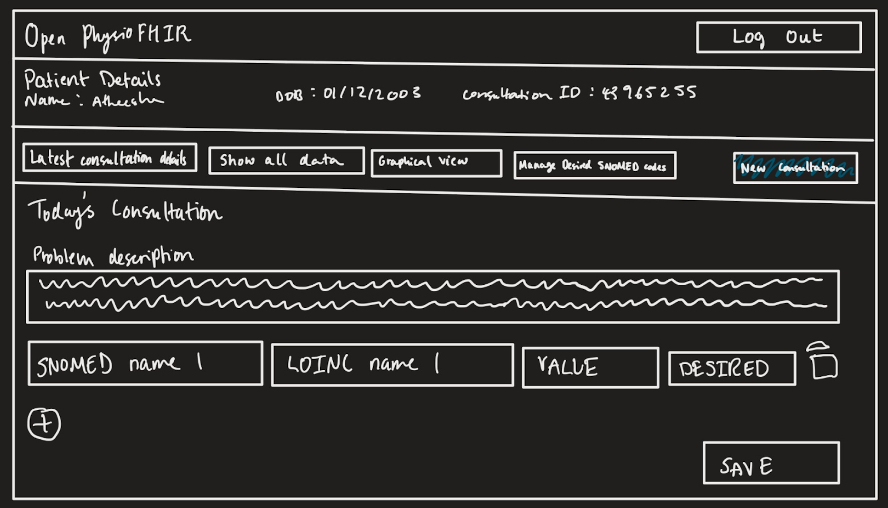 Open PhysioFHIR
Log Out
Patient Details
Name: Atheesha DOB: 01/12/2003 Consultation ID: 43965255
Latest consultation details Show all data Graphical view Manage Desired SNOMED codes New Consultation
Today's Consultation
Problem description
SNOMED name 1 LOINC name 1 VALUE DESIRED
+
SAVE